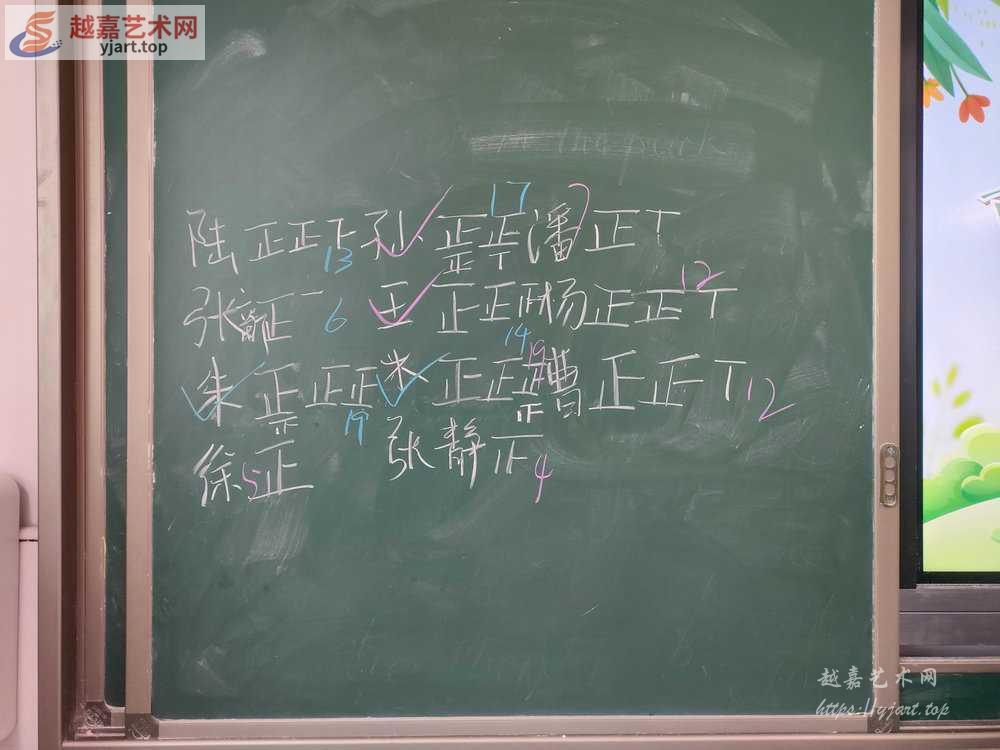 越嘉艺术网
yjart.top
the park
17
陆 正正下 13 孙 正正正丅 潘 正丅 7
张 正一 6 王 正正正 14 杨 正正丅 12
朱 正正正正 19 米 正正正正 19 曹 正正丅 12
徐 5 正 张静 正 4
越嘉艺术网
https://yjart.top